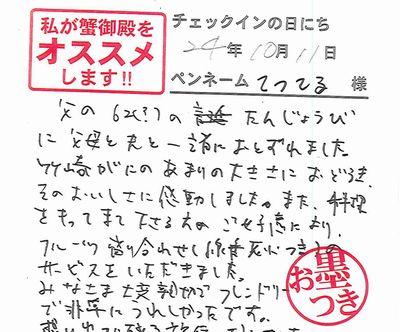 私が蟹御殿を
オススメ
します!!
チェックインの日にち
24年10月11日
ペンネーム てつてる 様
父の62(?)の たんじょうび
に父母と夫と一緒におとずれました。
竹崎がにのあまりの大きさにおどろき、
そのおいしさに感動しました。また、料理
をもってきて下さる方のご好意により、
フルーツ盛り合わせ(線香花火つき)の
サービスをいただきました。
みなさま大変親切でフレンドリー
で非常にうれしかったです。
お墨つき